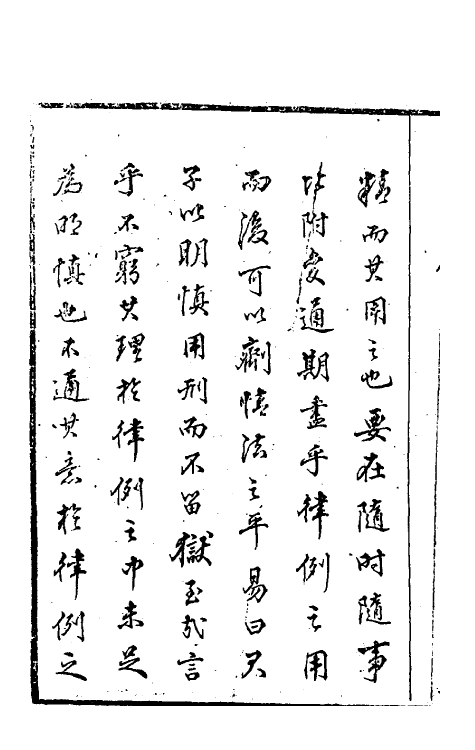 精而其用之也要在隨時隨事
比附變通期盡乎律例之用
而後可以劑情法之平易曰君
子以明慎用刑而不留獄至哉言
乎不窮其理於律例之中未足
為明慎也不通其意於律例之